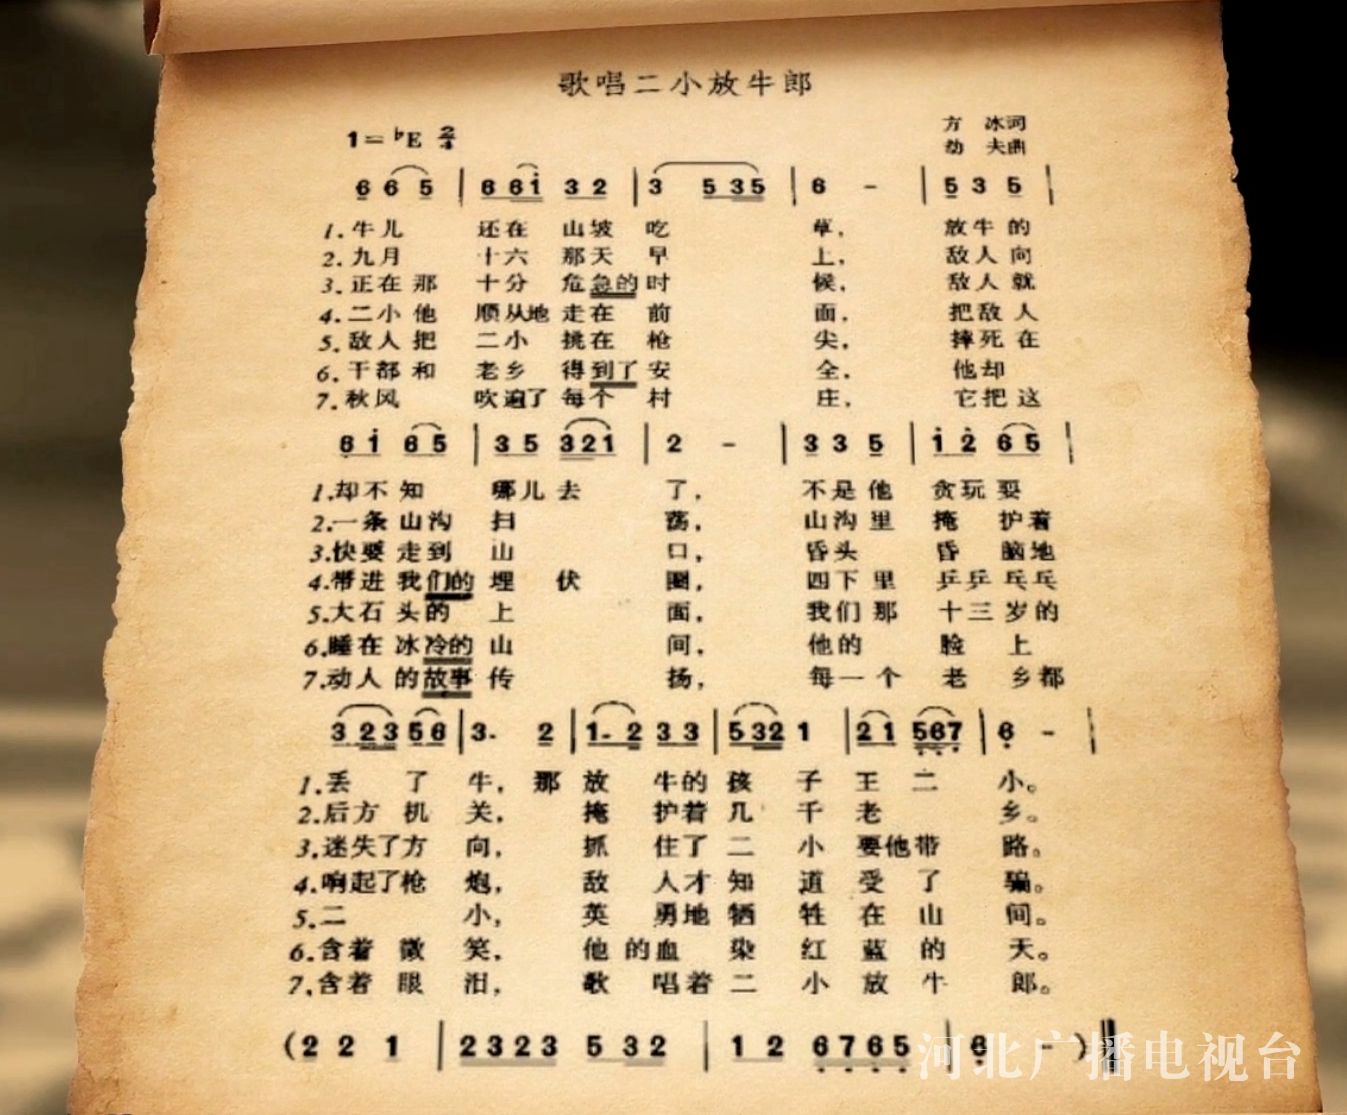 歌唱二小放牛郎
1=♭E 2/4
方 冰词
劫 夫曲
6 6 5 | 6 6 i 3 2 | 3 5 3 5 | 6 - | 5 3 5 |
1.牛儿 还在 山坡 吃 草, 放牛的
2.九月 十六 那天 早 上, 敌人向
3.正在那 十分 危急的时 候, 敌人就
4.二小他 顺从地 走在 前 面, 把敌人
5.敌人把 二小 挑在 枪 尖, 摔死在
6.干部和 老乡 得到了安 全, 他却
7.秋风 吹遍了 每个 村 庄, 它把这
6 i 6 5 | 3 5 3 2 1 | 2 - | 3 3 5 | i 2 6 5 |
1.却不知 哪儿去 了, 不是他 贪玩耍
2.一条山沟 扫 荡, 山沟里 掩 护着
3.快要走到 山 口, 昏头 昏 脑地
4.带进我们的 埋 伏 圈, 四下里 乒乒乓乓
5.大石头的 上 面, 我们那 十三岁的
6.睡在冰冷的 山 间, 他的 脸 上
7.动人的故事 传 扬, 每一个 老 乡都
3 2 3 5 6 | 3. 2 | 1. 2 3 3 | 5 3 2 1 | 2 1 5 6 7 | 6 - |
1.丢 了 牛, 那 放 牛的 孩 子 王 二 小。
2.后方 机 关, 掩 护着 几 千 老 乡。
3.迷失了方 向, 抓 住了 二 小 要他带 路。
4.响起了枪 炮, 敌 人才 知 道 受 了 骗。
5.二 小, 英 勇地 牺 牲 在 山 间。
6.含着 微 笑, 他 的血 染 红 蓝 的 天。
7.含着 眼 泪, 歌 唱着 二 小 放 牛 郎。
(2 2 1 | 2 3 2 3 5 3 2 | 1 2 6 7 6 5 | 6 - )
河北广播电视台